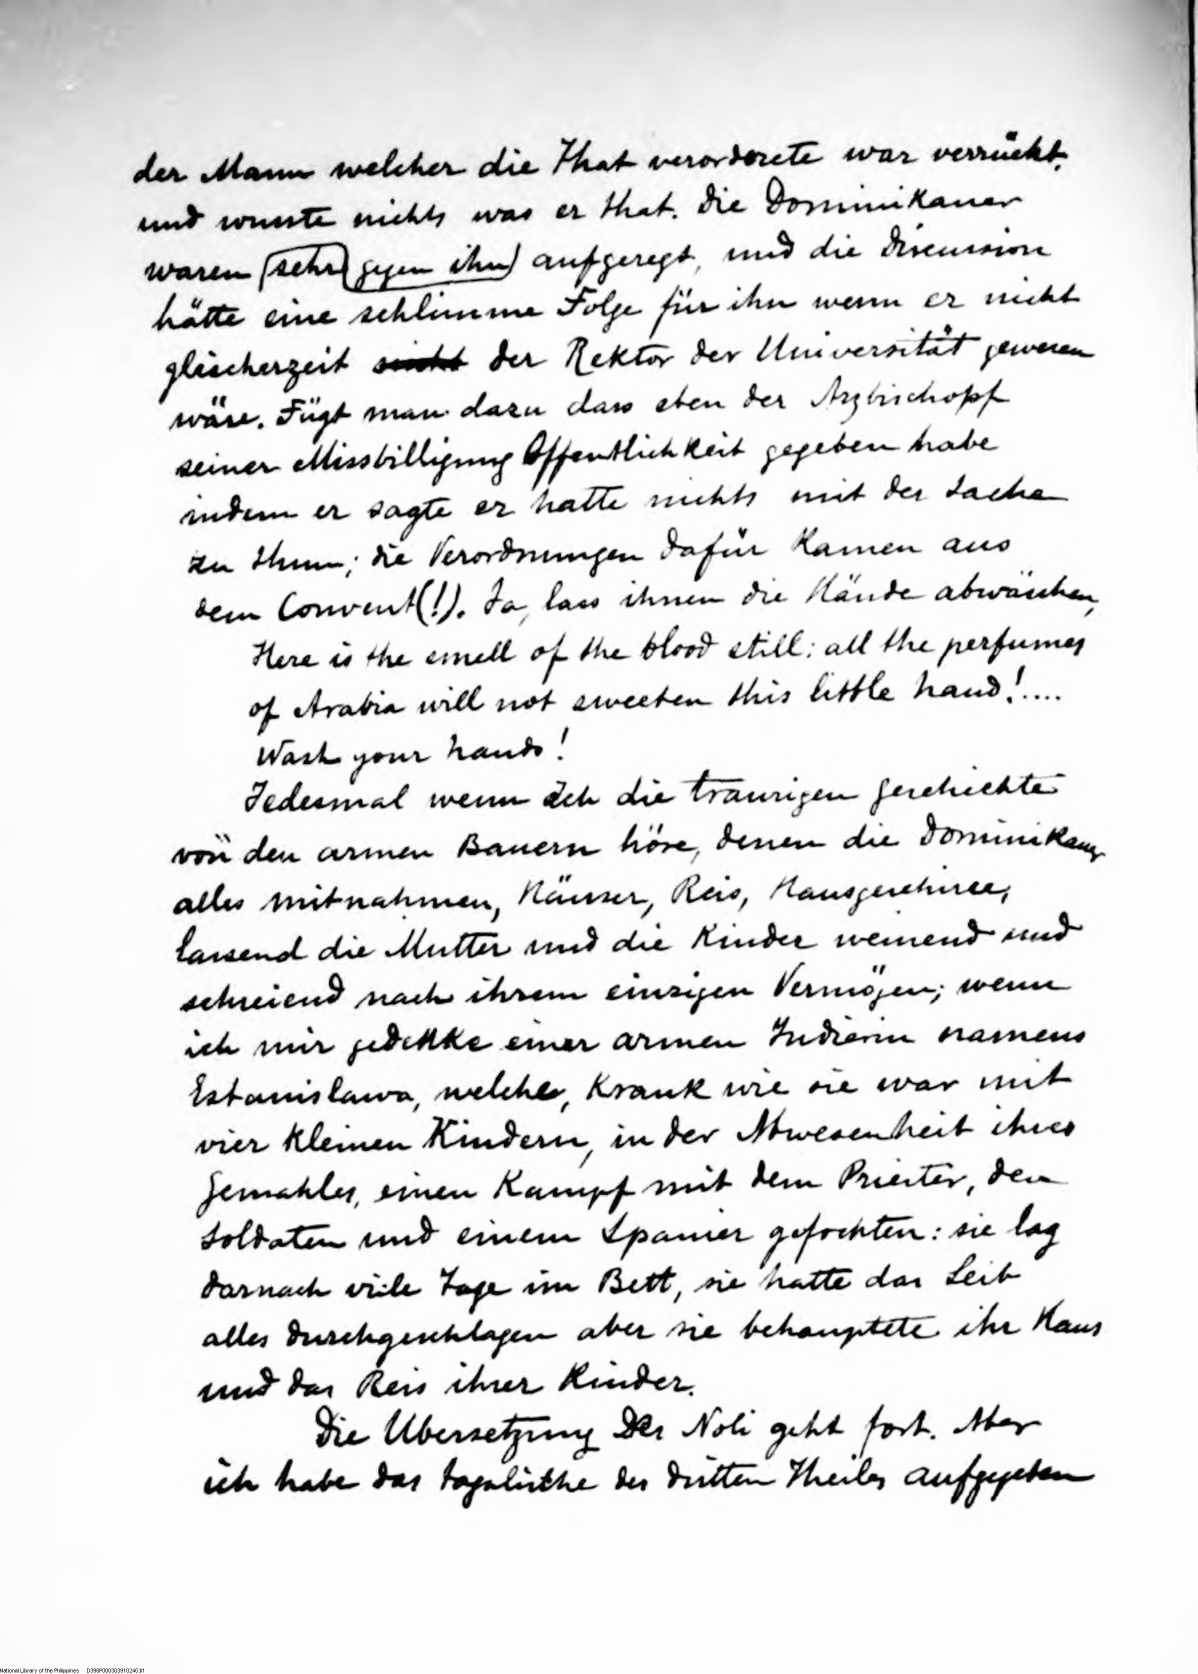 der Mann welcher die That verordorete war verrückt,
und wusste nichts was er that. Die Dominikaner
waren sehr gegen ihn aufgeregt, und die Discussion
hätte eine schlimme Folge für ihn wenn er nicht
gleicherzeit nicht der Rektor der Universität gewesen
wäre. Fügt man dazu dass eben der Arzbischopf
seiner Missbilligung Offentlichkeit gegeben habe
indem er sagte er hatte nichts mit der Sache
zu thun; die Verordnungen dafür kamen aus
dem Convent(!). Ja, lass ihnen die Hände abwäschen,
Here is the smell of the blood still: all the perfumes
of Arabia will not sweeten this little hand!....
Wash your hands!
Jedesmal wenn Ich die traurigen Geschichte
von den armen Bauern höre, denen die Dominikaner
alles mitnahmen, Häuser, Reis, Hausgeschirre,
lassend die Mutter und die Kinder weinend und
schreiend nach ihrem einzigen Vermögen; wenn
ich mir gedenke einer armen Indierin namens
Estanislawa, welche, krank wie sie war mit
vier kleinen Kindern, in der Abwesenheit ihres
Gemahles, einen Kampf mit dem Priester, den
Soldaten und einem Spanier gefochten: sie lag
darnach viele Tage im Bett, sie hatte das Leib
alles durchgeschlagen aber sie behauptete ihr Haus
und das Reis ihrer Kinder.
Die Ubersetzung Des Noli geht fort. Aber
ich habe das tagalische des dritten Theiles aufgegeben
National Library of the Philippines